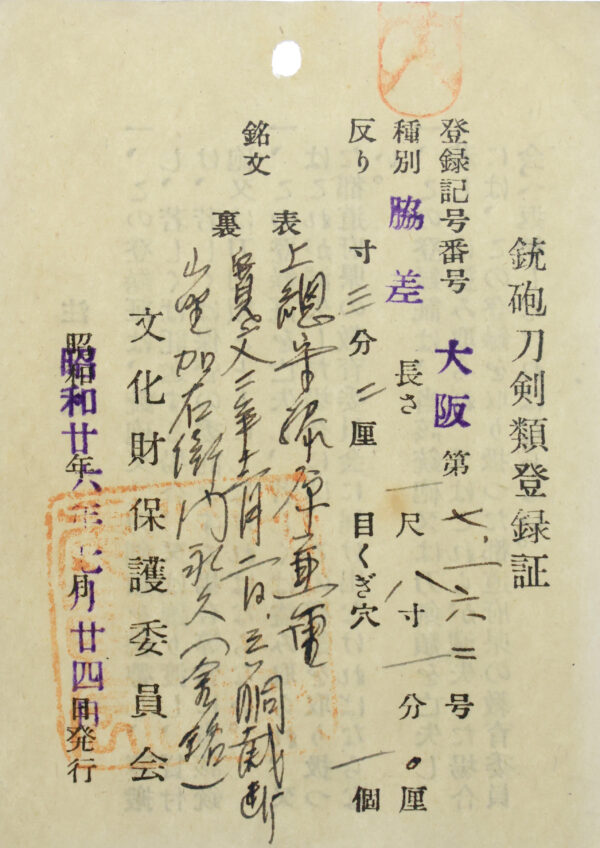 銃砲刀剣類登録証
登録記号番号 大阪 第七、一六二号
種別 脇差 長さ 一尺八寸一分〇厘
反り 寸三分二厘 目くぎ穴 一個
銘文
表 上總守藤原兼重
裏 寛文二年 月二日 胴截断
山野加右衛門永久(金銘)
文化財保護委員会
昭和廿六年七月廿四日発行